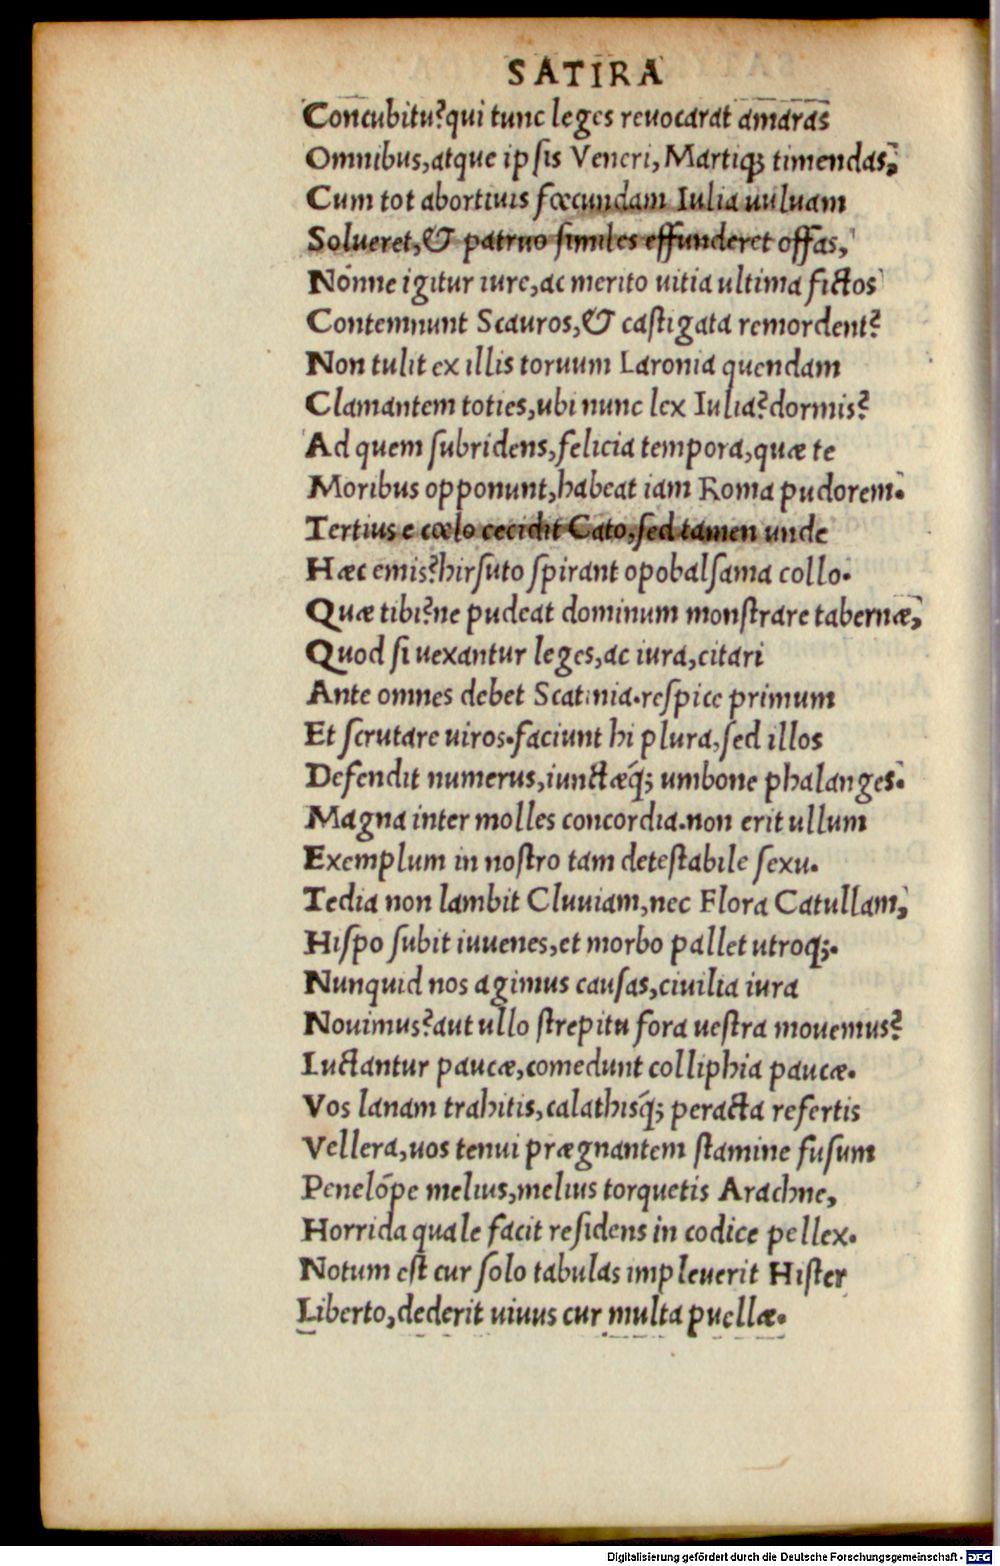 SATIRA
Concubitu?qui tunc leges reuocarat amaras
Omnibus,atque ipsis Veneri,Martiq; timendas,
Cum tot abortiuis fœcundam Iulia uuluam
Solueret,& patruo similes effunderet offas,
Nónne igitur iure,ac merito uitia ultima fictos
Contemnunt Scauros,& castigata remordent?
Non tulit ex illis toruum Laronia quendam
Clamantem toties,ubi nunc lex Iulia?dormis?
Ad quem subridens,felicia tempora,quæ te
Moribus opponunt,habeat iam Roma pudorem.
Tertius e cœlo cecidit Cato,sed tamen unde
Hæc emis?hirsuto spirant opobalsama collo.
Quæ tibi?ne pudeat dominum monstrare tabernæ,
Quod si uexantur leges,ac iura,citari
Ante omnes debet Scatinia.respice primum
Et scrutare uiros.faciunt hi plura,sed illos
Defendit numerus,iunctæq́; umbone phalanges.
Magna inter molles concordia.non erit ullum
Exemplum in nostro tam detestabile sexu.
Tedia non lambit Cluuiam,nec Flora Catullam,
Hispo subit iuuenes,et morbo pallet utroq;.
Nunquid nos agimus causas,ciuilia iura
Nouimus?aut ullo strepitu fora uestra mouemus?
Luctantur paucæ,comedunt colliphia paucæ.
Vos lanam trahitis,calathisq́; peracta refertis
Vellera,uos tenui prægnantem stamine fusum
Penelópe melius,melius torquetis Arachne,
Horrida quale facit residens in codice pellex.
Notum est cur solo tabulas impleuerit Hister
Liberto,dederit uiuus cur multa puellæ.
Digitalisierung gefördert durch die Deutsche Forschungsgemeinschaft - DFG